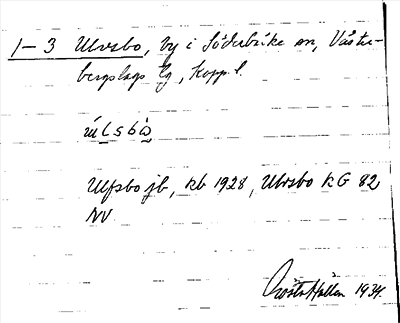 1–3 Ulvsbo, by i Söderbärke sn, Väster-
bergslags lg, Kopp. l.
Ulfsbo jb, kb 1928, Ulvsbo kG 82
NV.
Gösta Hallén 1934.